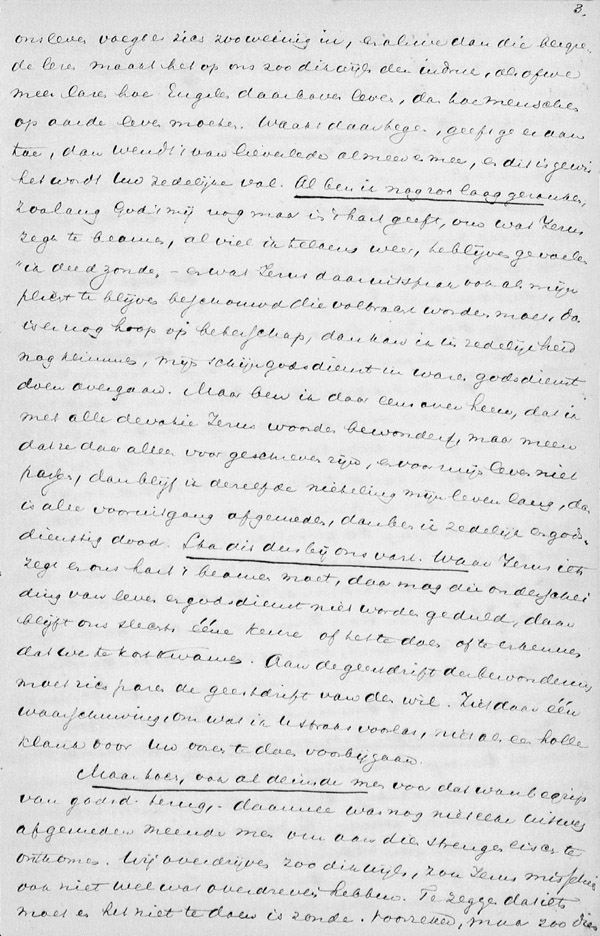 3.
ons leven voegt er zich zoo weinig in, en alleen dan die bergre-
de lezen maakt het op ons zoo dikwijls den indruk, alsof we
meer lazen hoe Engelen daarboven leven, dan hoe menschen
op aarde leven moeten. Waakt daartegen, geeft ge er aan
toe, dan wendt 't van lieverlede al meer en meer, en dit is gewis
het wordt uw zedelijke val. Al ben ik nog zoo laag gezonken,
zoolang God 't mij nog maar in 't hart geeft, om wat Jezus
zegt te beamen, al viel ik telkens weer, te blijven gevoelen
"ik deed zonde, – en wat Jezus daar uitsprak ook als mijn
plicht te blijven beschouwd die volbracht worden moet, dan
is er nog hoop op beterschap, dan kan in de zedelijkheid
nog kiemmen, mijn schijngodsdienst in waren godsdienst
doen overgaan. Maar ben ik daar eens over heen, dat ik
met alle devotie Jezus woorden bewonder, maar meen
dat ze daar alleen voor geschreven zijn, en voor mijn leven niet
passen, dan blijf ik dezelfde nieteling mijn leven lang, dan
is alle vooruitgang afgesneden, dan ben ik zedelijk en gods-
dienstig dood. Sta dit dus bij ons vast. Waar Jezus iets
zegt en ons hart 't beamen moet, daar mag die onderschei
ding van leven en godsdienst niet worden geduld, daar
blijft ons slechts ééne keuze of het te doen of te erkennen
dat we te kort kwamen. Aan de geestdrift der bewondering
moet zich paren de geestdrift van den wil. Ziet daar één
waarschuwing, om wat ik U straks voorlas, niet als een holle
klank voor uw ooren te doen voorbijgaan.
Maar hoe, ook al deinsde men voor dat wanbegrip
van godsd. terug, – daarmee was nog niet elke uitweg
afgesneden meende men om aan dien strengen eisch te
ontkomen. Wij overdrijven zoo dikwijls, zou Jezus misschien
ook niet wel wat overdreven hebben. Te zeggen dat iets
moet en het niet te doen is zonde. Voorzeker, maar zoo dien